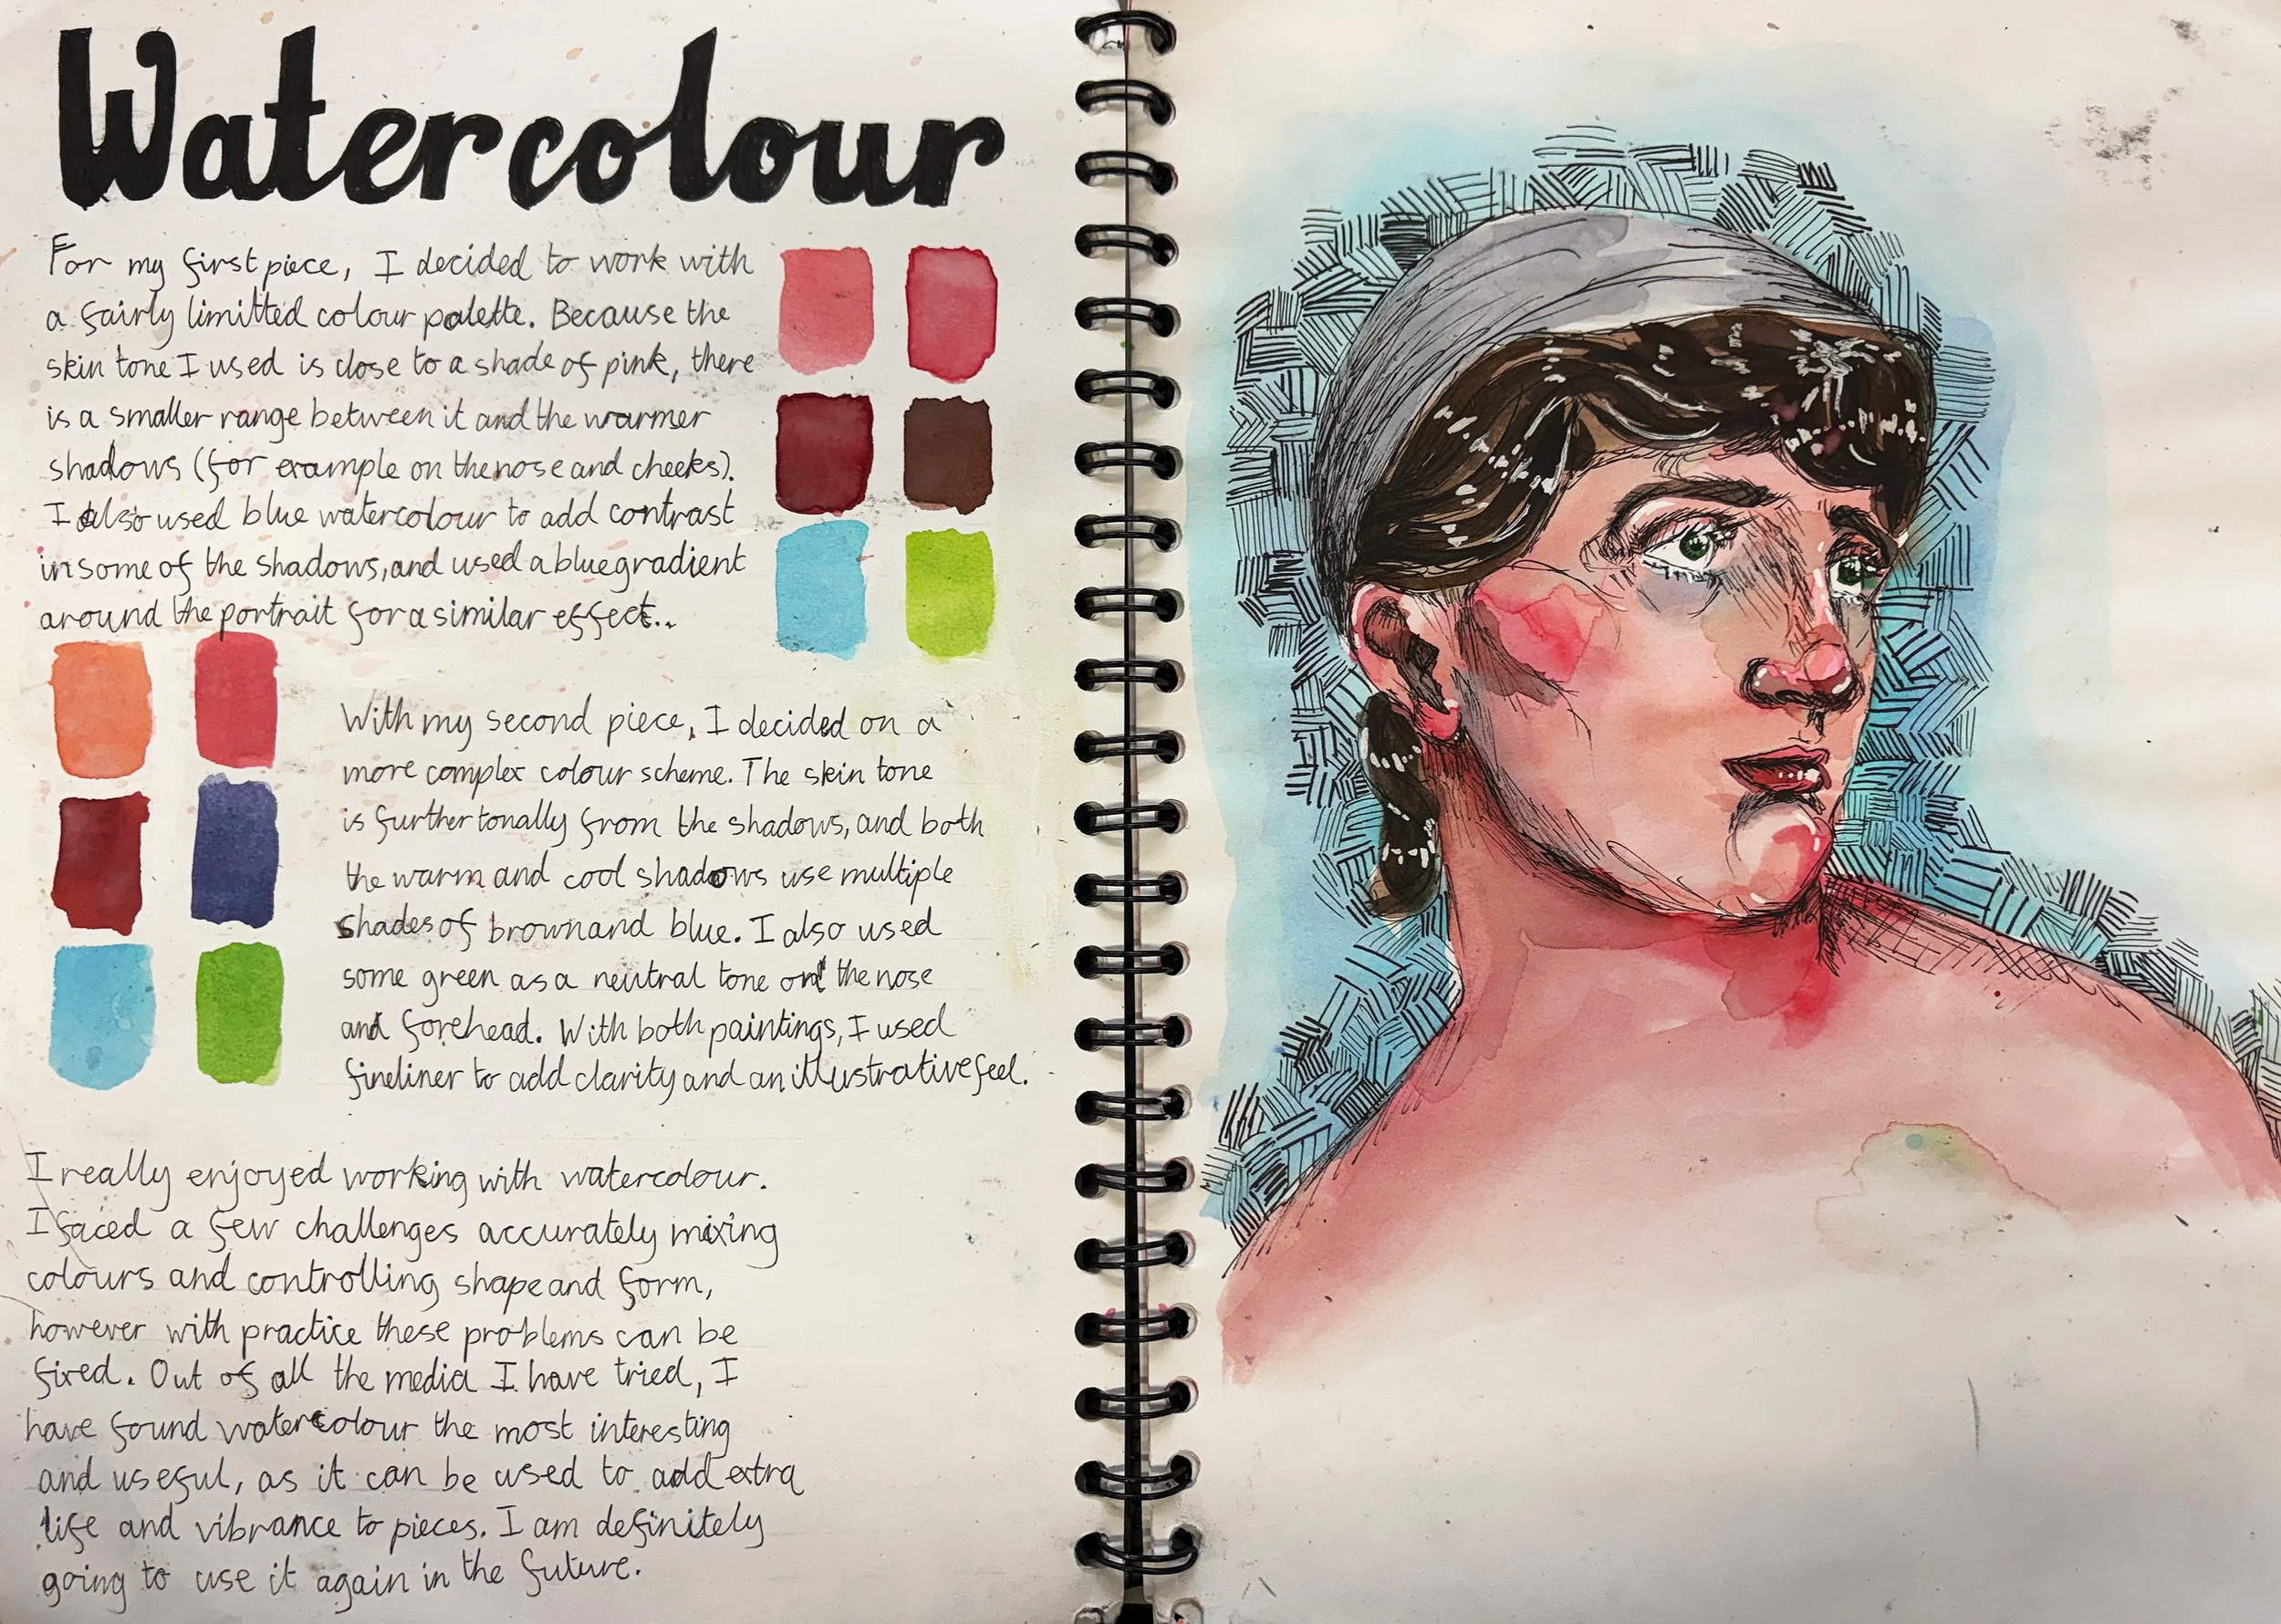 Watercolour
For my first piece, I decided to work with
a fairly limitted colour palette. Because the
skin tone I used is close to a shade of pink, there
is a smaller range between it and the warmer
shadows (for example on the nose and cheeks).
I also used blue watercolour to add contrast
in some of the shadows, and used a blue gradient
around the portrait for a similar effect..
With my second piece, I decided on a
more complex colour scheme. The skin tone
is further tonally from the shadows, and both
the warm and cool shadows use multiple
shades of brown and blue. I also used
some green as a neutral tone on the nose
and forehead. With both paintings, I used
fineliner to add clarity and an illustrative feel.
I really enjoyed working with watercolour.
I faced a few challenges accurately mixing
colours and controlling shape and form,
however with practice these problems can be
fixed. Out of all the media I have tried, I
have found watercolour the most interesting
and useful, as it can be used to add extra
life and vibrance to pieces. I am definitely
going to use it again in the future.